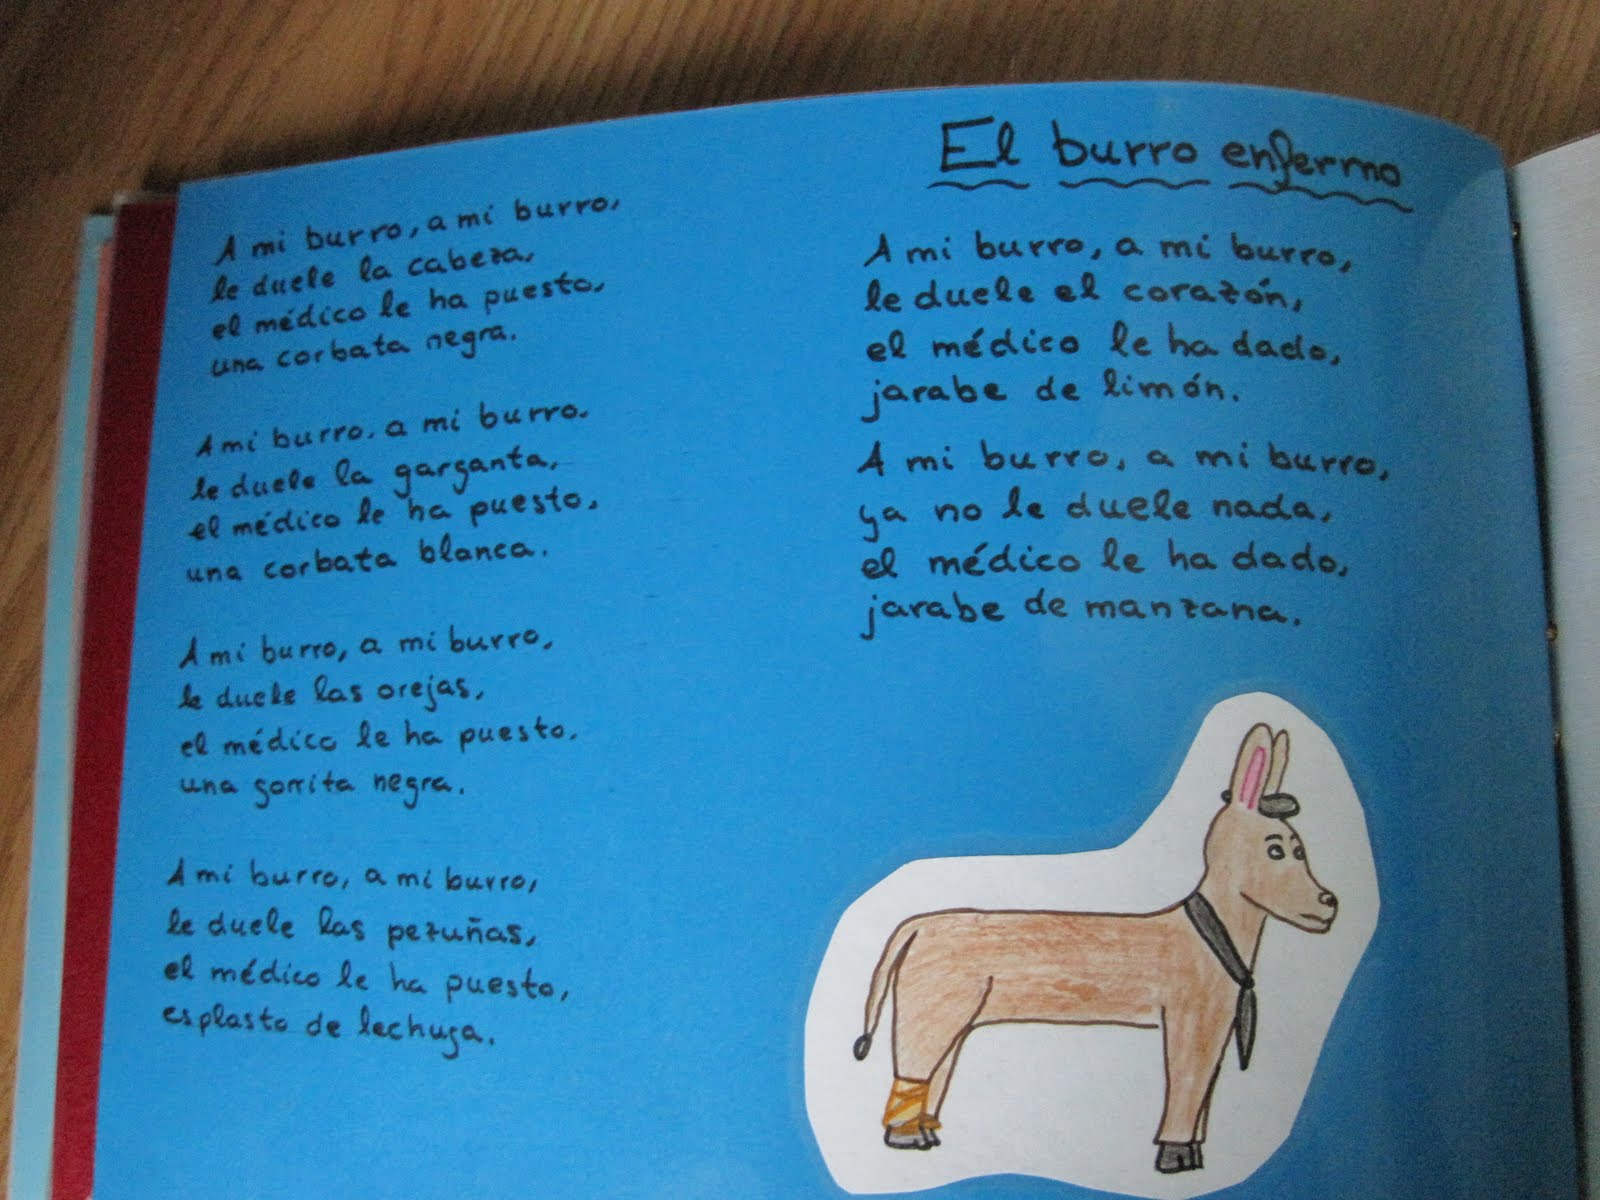 El burro enfermo
A mi burro, a mi burro,
le duele la cabeza,
el médico le ha puesto,
una corbata negra.
A mi burro, a mi burro,
le duele la garganta,
el médico le ha puesto,
una corbata blanca.
A mi burro, a mi burro,
le duele las orejas,
el médico le ha puesto,
una gorrita negra.
A mi burro, a mi burro,
le duele las pezuñas,
el médico le ha puesto,
esplasto de lechuga.
A mi burro, a mi burro,
le duele el corazón,
el médico le ha dado,
jarabe de limón.
A mi burro, a mi burro,
ya no le duele nada,
el médico le ha dado,
jarabe de manzana.